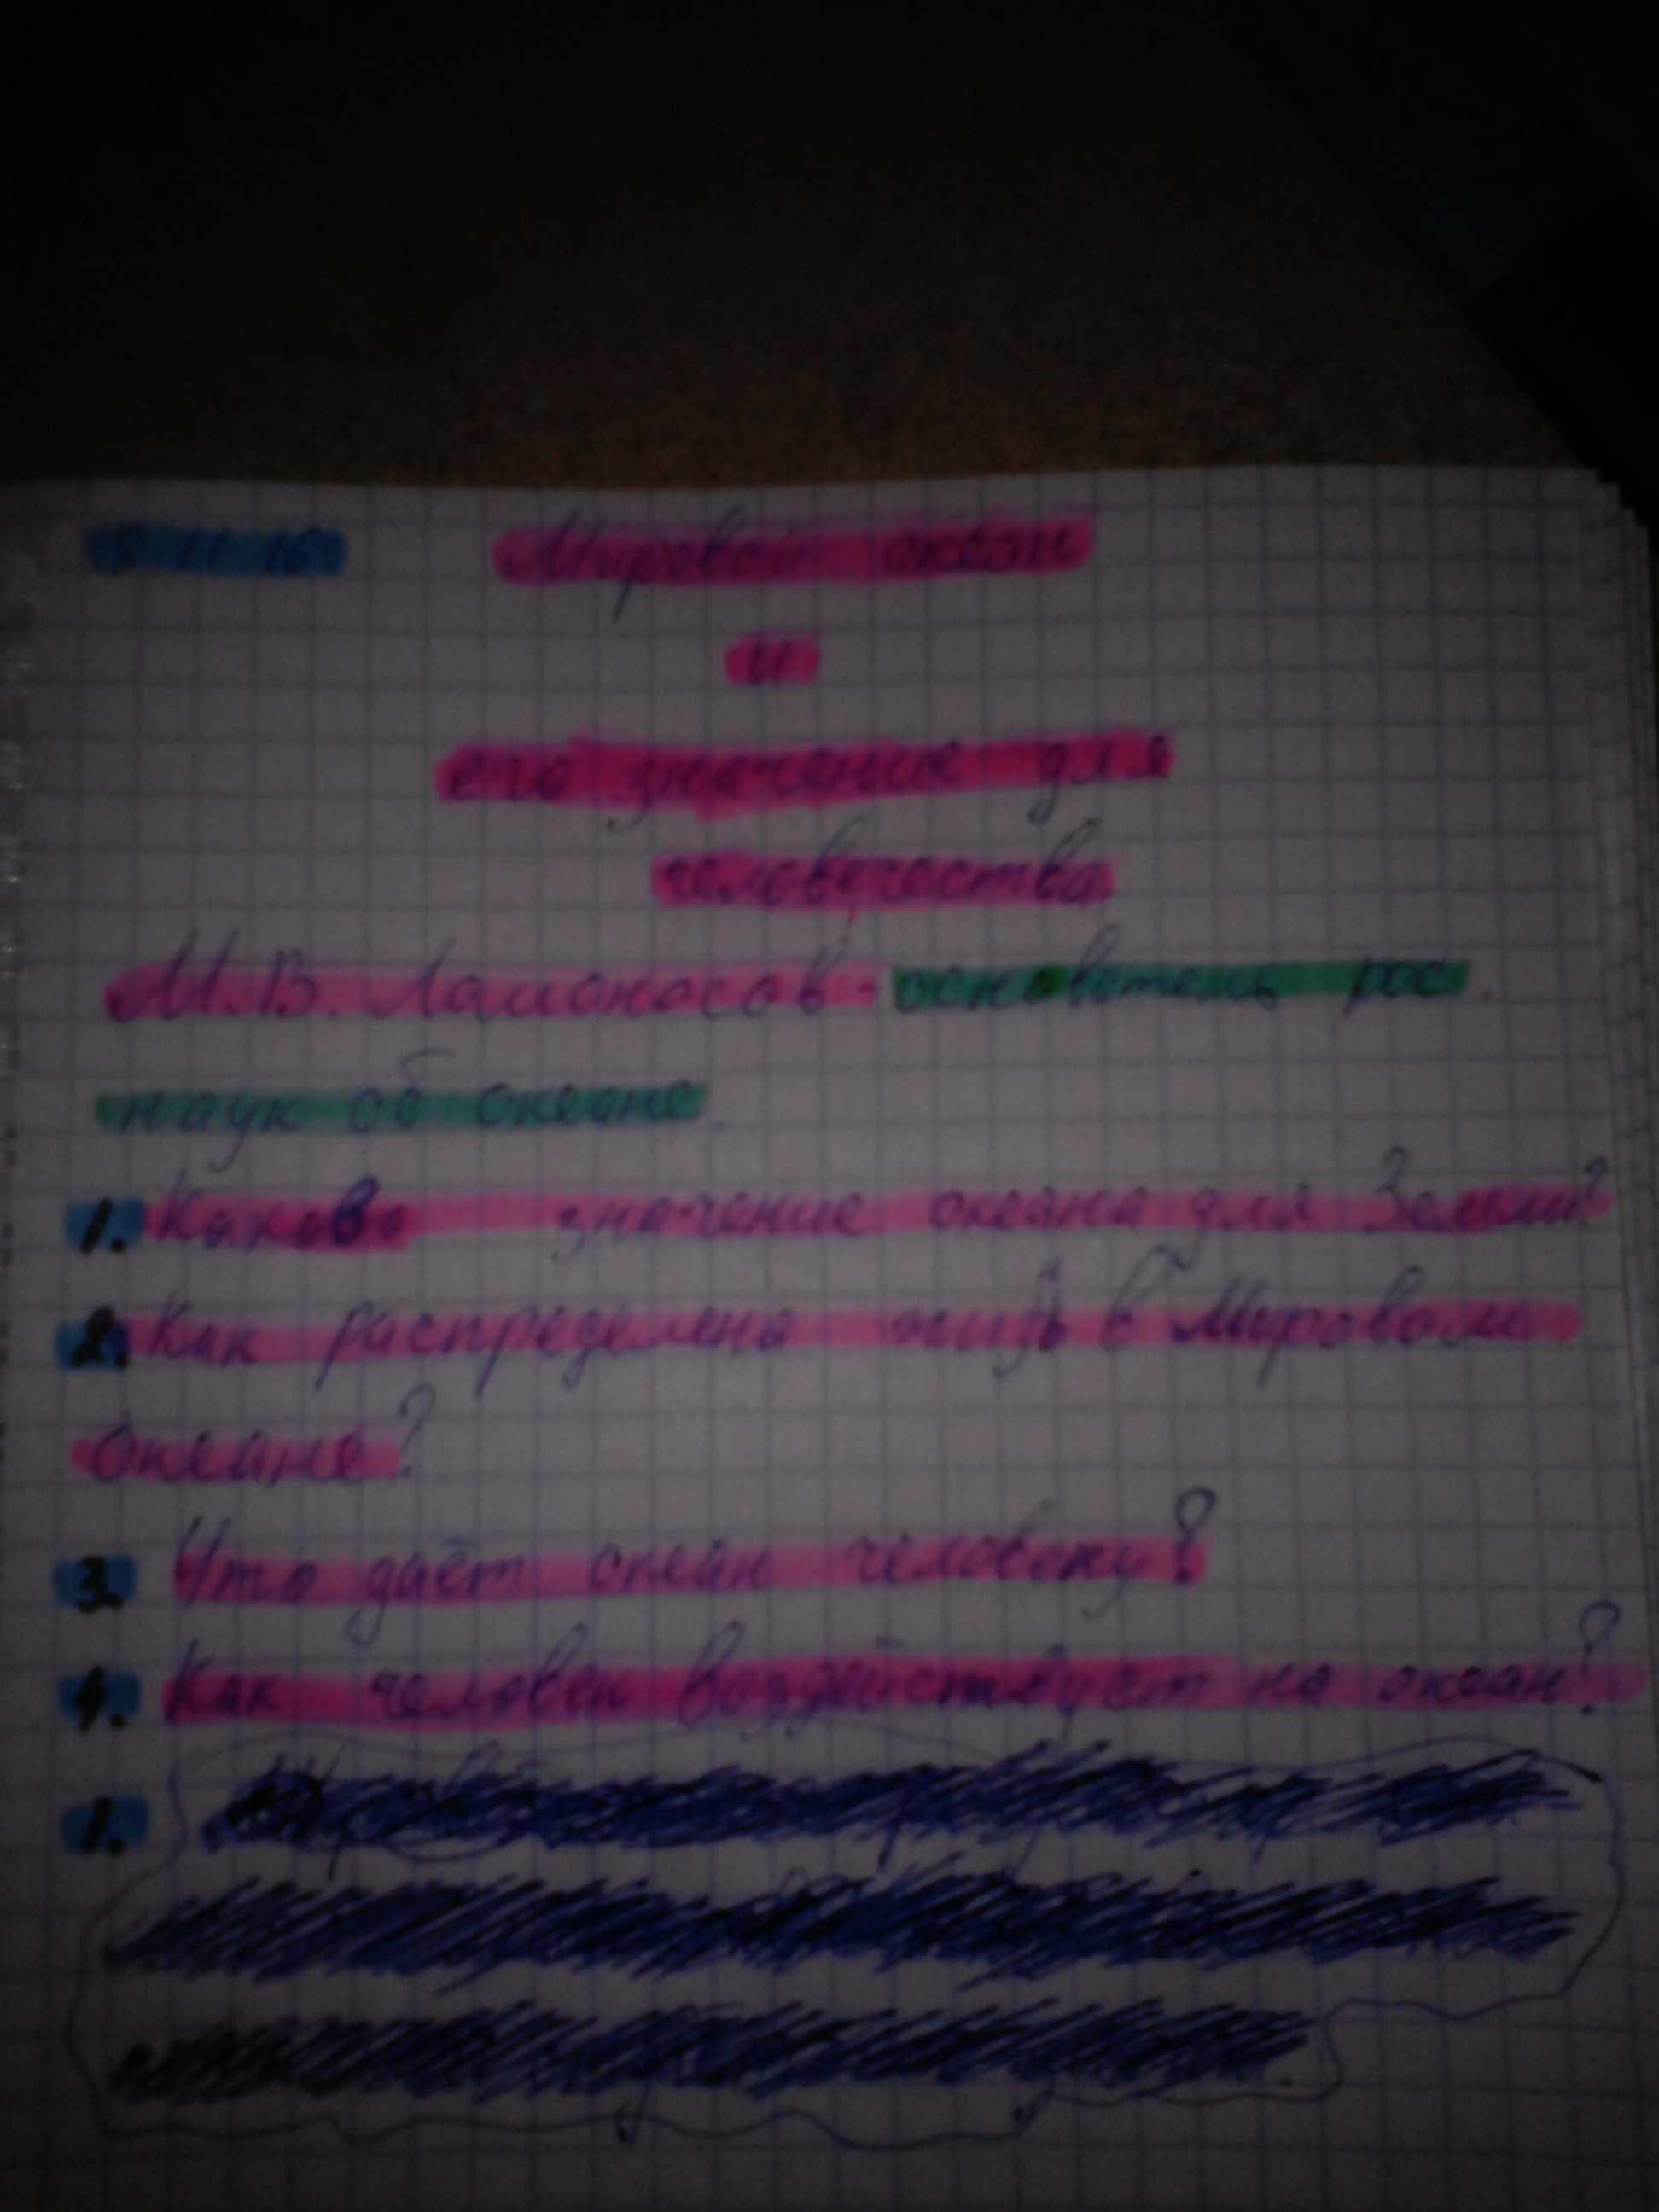 8 11 16 Мировой океан
и
его значение для
человечества
М.В. Ломоносов - основатель рос.
наук об океане.
1. Каково значение океана для Земли?
2. Как распределена в Мировом
океане?
3. Что даёт океан человеку?
4. Как человек воздействует на океан?
1.